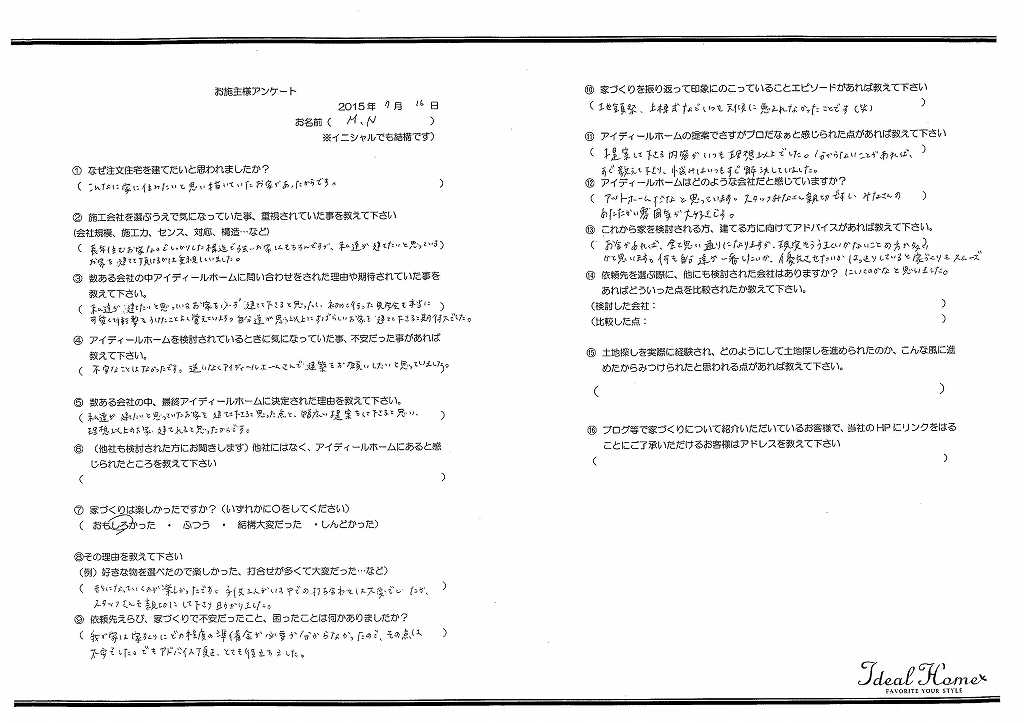 お施主様アンケート
2015年 7月 16日
お名前（ M、N ）
※イニシャルでも結構です）
① なぜ注文住宅を建てたいと思われましたか？
（ こんな家に住みたいと思い描いていたお家があったからです。 ）
② 施工会社を選ぶうえで気になっていた事、重視されていた事を教えて下さい
(会社規模、施工力、センス、対応、構造…など)
（ 長年住むお家なのでしっかりした構造で
お家を建てて頂けるかは重視していました。
③ 数ある会社の中アイディールホームに問い合わせをされた理由や期待されていた事を
教えて下さい。
（ 私達が建てたいと思っているお家を
建てて下さると期待してました。
④ アイディールホームを検討されているときに気になっていた事、不安だった事があれば
教えて下さい。
（ 不安なことはなかったです。迷いなくアイディールホームさんで建築をお願いしたいと思っていました。
⑤ 数ある会社の中、最終アイディールホームに決定された理由を教えて下さい。
（ 私達が建たいと思っていたお家を建て下さると思った点と、幅広い提案をして下さると思い、 ）
理想以上のお家が建てれると思ったからです。
⑥ （他社も検討された方にお聞きします）他社にはなく、アイディールホームにあると感
じられたところを教えて下さい
（ ）
⑦ 家づくりは楽しかったですか？（いずれかに○をしてください）
（ おもしろかった ・ ふつう ・ 結構大変だった ・しんどかった）
⑧その理由を教えて下さい
（例）好きな物を選べたので楽しかった、打合せが多くて大変だった…など）
（ 楽しかったです。子供2人がいる中での打ち合わせは大変でしたが、 ）
スタッフさんも親切にして下さり助かりました。
⑨ 依頼先えらび、家づくりで不安だったこと、困ったことは何かありましたか？
（ 我が家は家づくりにどの程度の準備金が必要か分からなかったので、その点は ）
不安でした。でもアドバイス頂き、とても役立ちました。
⑩ 家づくりを振り返って印象にのこっていることエピソードがあれば教えて下さい
（ 地鎮祭、上棟式などいつも天候に恵まれなかったことです（笑） ）
⑪ アイディールホームの提案でさすがプロだなぁと感じられた点があれば教えて下さい
（ 提案して下さる内容がいつも理想以上でした。分からないことがあれば、 ）
すぐ教えて下さり、いつもすぐ解決していました。
⑫ アイディールホームはどのような会社だと感じていますか？
（ アットホームだなと思っています。スタッフみなさん親切ですし、みなさんの ）
あたたかい雰囲気が大好きです。
⑬ これから家を検討される方、建てる方に向けてアドバイスがあれば教えて下さい。
（ お金があれば、全て思い通りになりますが、現実そううまくいかないことの方が多い ）
かと思います。何を自分達が一番したいか、優先させたいかはっきりしていると家づくりもスムーズ
にいくのかなと思いました。
⑭ 依頼先を選ぶ際に、他にも検討された会社はありますか？
あればどういった点を比較されたか教えて下さい。
（検討した会社： ）
（比較した点： ）
⑮ 土地探しを実際に経験され、どのようにして土地探しを進められたのか、こんな風に進
めたからみつけられたと思われる点があれば教えて下さい。
（ ）
⑯ ブログ等で家づくりについて紹介いただいているお客様で、当社のHPにリンクをはる
ことにご了承いただけるお客様はアドレスを教えて下さい
（ ）
Ideal Home
FAVORITE YOUR STYLE